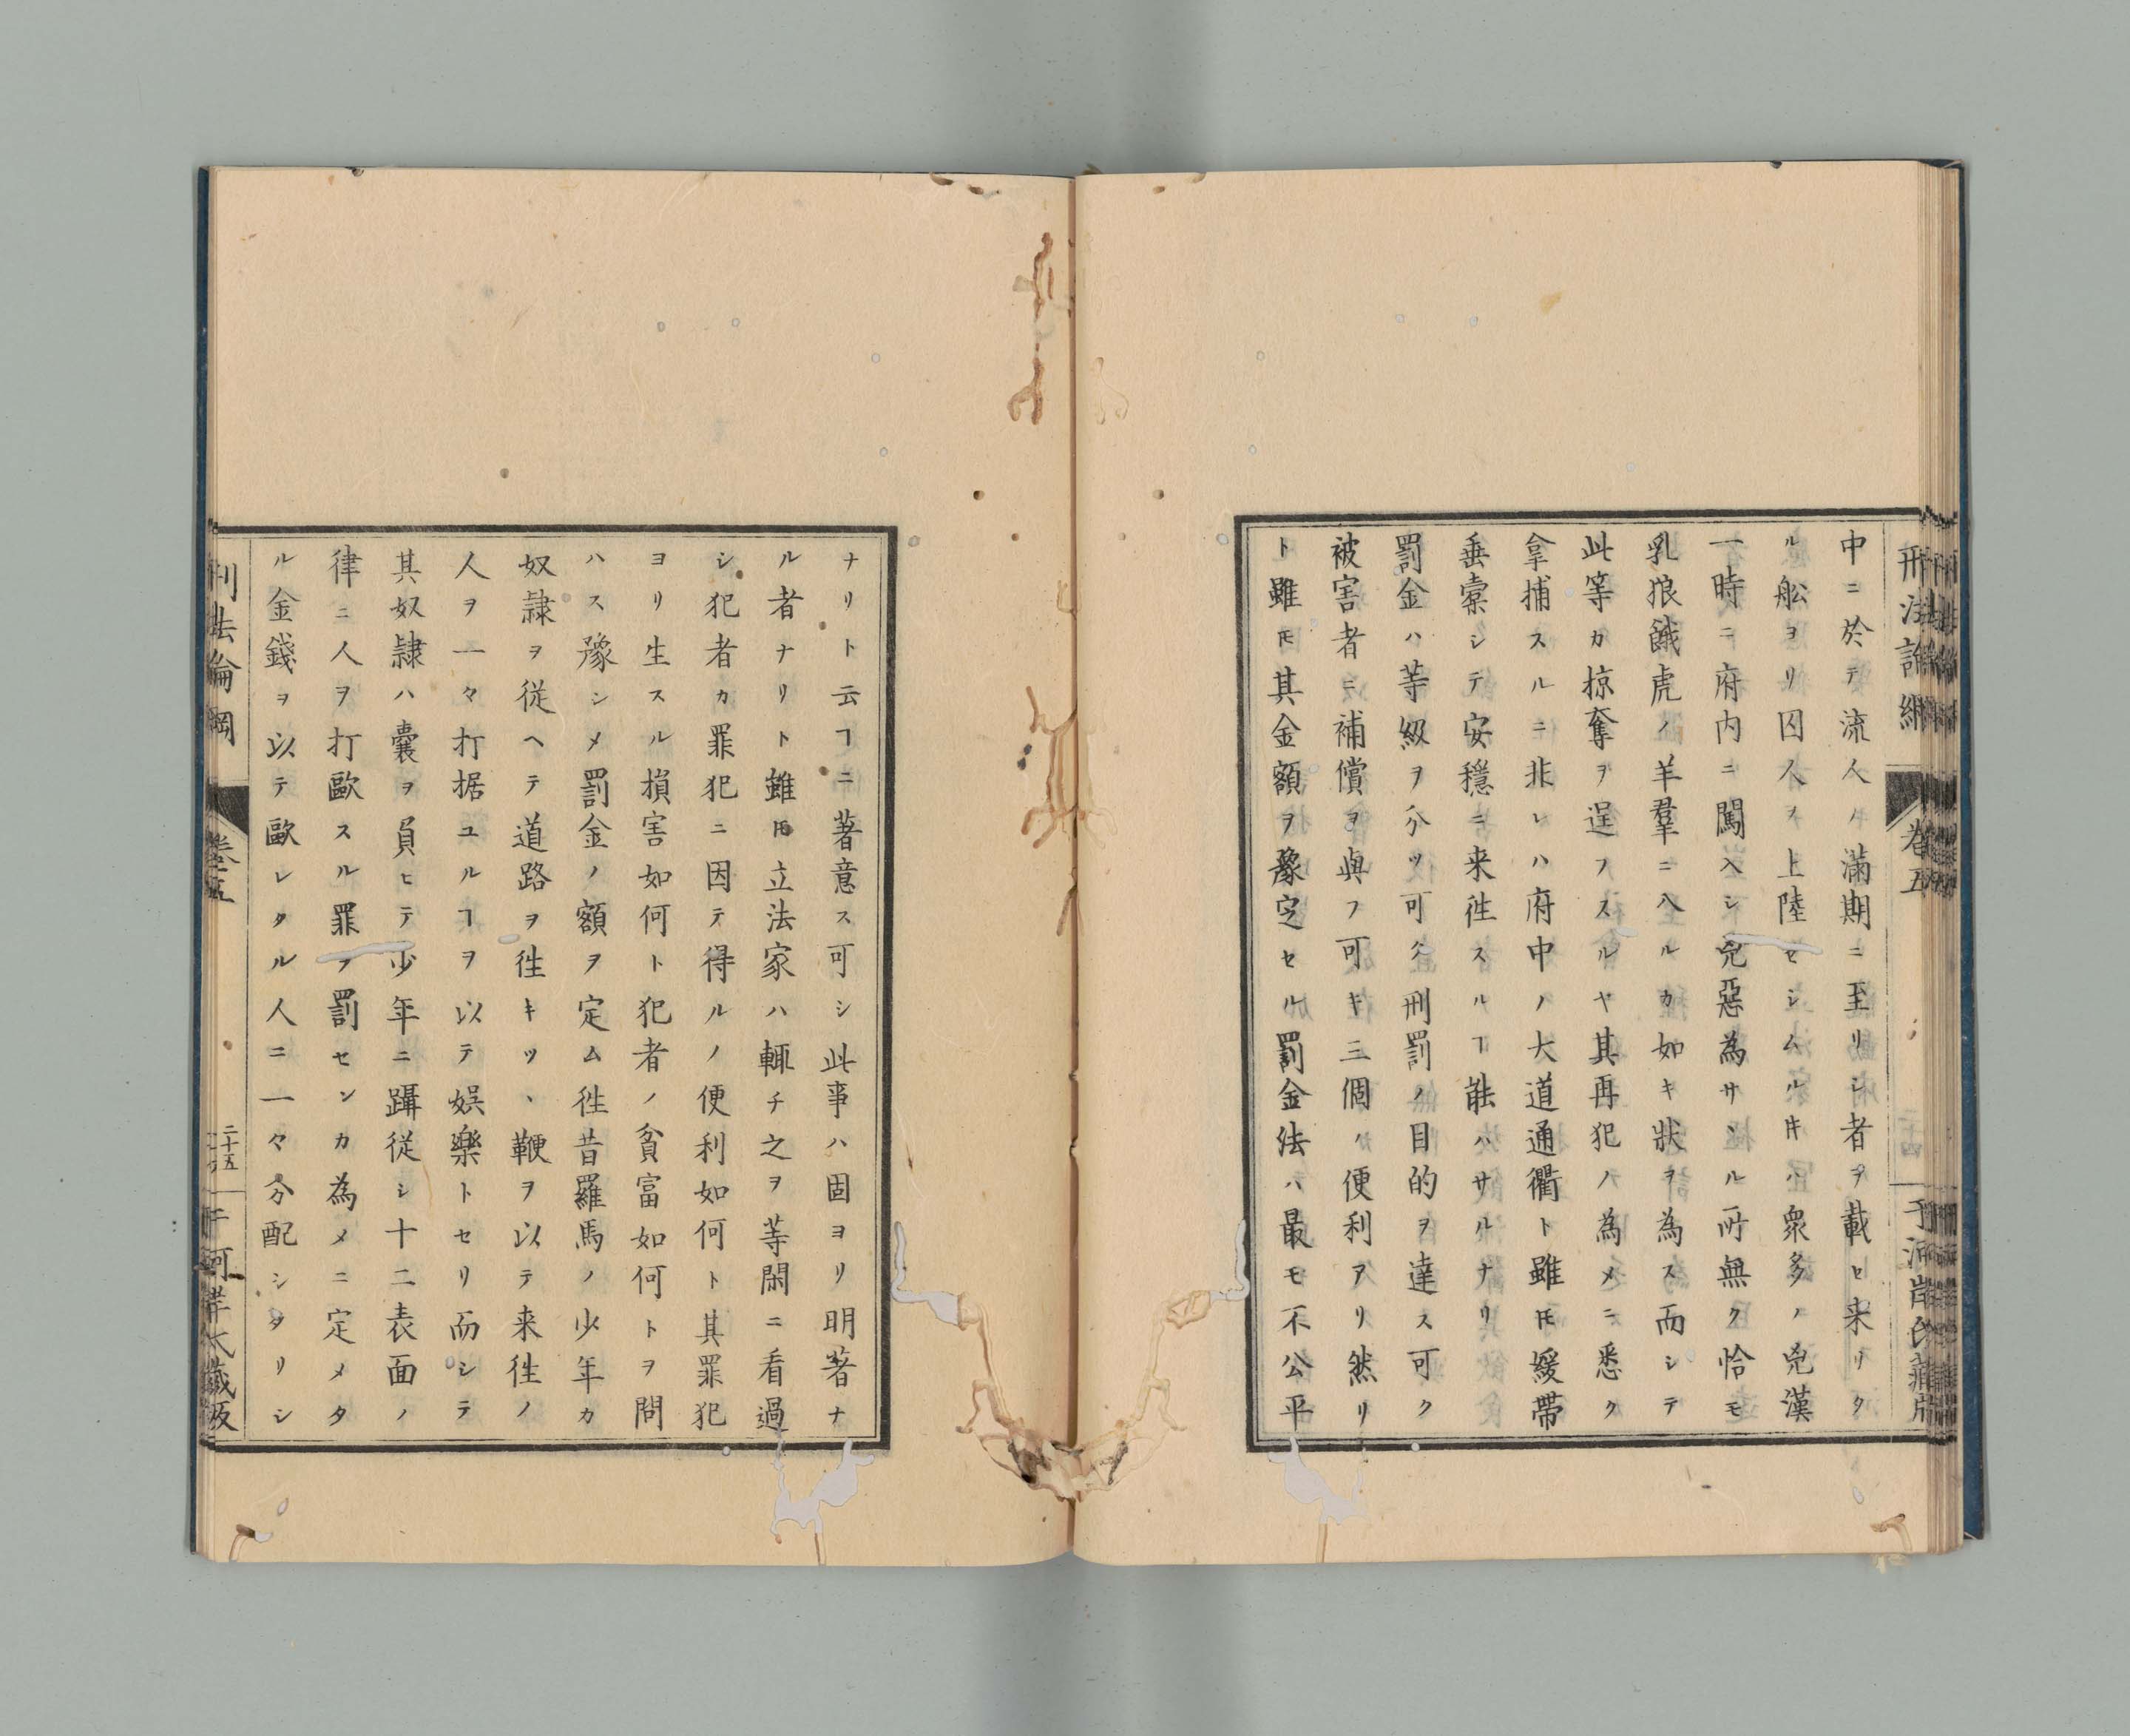 中ニ於テ流人ノ滿期ニ至リシ者ヲ載セ来リタ
ル舩ヨリ囚人ヲ上陸セシムルキハ衆多ノ兇漢
一時ニ府内ニ闖入シ兇惡為サヽル所無ク恰モ
乳狼餓虎ノ羊羣ニ入ルカ如キ狀ヲ為ス而シテ
此等カ掠奪ヲ逞フスルヤ其再犯ノ為メニ悉ク
拿捕スルニ非レハ府中ノ大道通衢ト雖𪜈緩帶
垂橐シテ安穩ニ来徃スルヿ能ハサルナリ
罰金ハ等級ヲ分ツ可ク刑罰ノ目的ヲ達ス可ク
被害者ニ補償ヲ與フ可キ三個ノ便利アリ然リ
ト雖𪜈其金額ヲ豫定セル罰金法ハ最モ不公平
刑法論綱 卷五 二十五
ナリト云フヿニ著意ス可シ此事ハ固ヨリ明著ナ
ル者ナリト雖𪜈立法家ハ輒チ之ヲ等閑ニ看過
シ犯者カ罪犯ニ因テ得ルノ便利如何ト其罪犯
ヨリ生スル損害如何ト犯者ノ貧富如何トヲ問
ハス豫シメ罰金ノ額ヲ定ム徃昔羅馬ノ少年カ
奴隷ヲ従ヘテ道路ヲ徃キツヽ鞭ヲ以テ来徃ノ
人ヲ一々打据ユルヿヲ以テ娯樂トセリ而シテ
其奴隷ハ囊ヲ負ヒテ少年ニ躡従シ十二表面ノ
律ニ人ヲ打歐スル罪ヲ罰センカ為メニ定メタ
ル金錢ヲ以テ歐レタル人ニ一々分配シタリシ